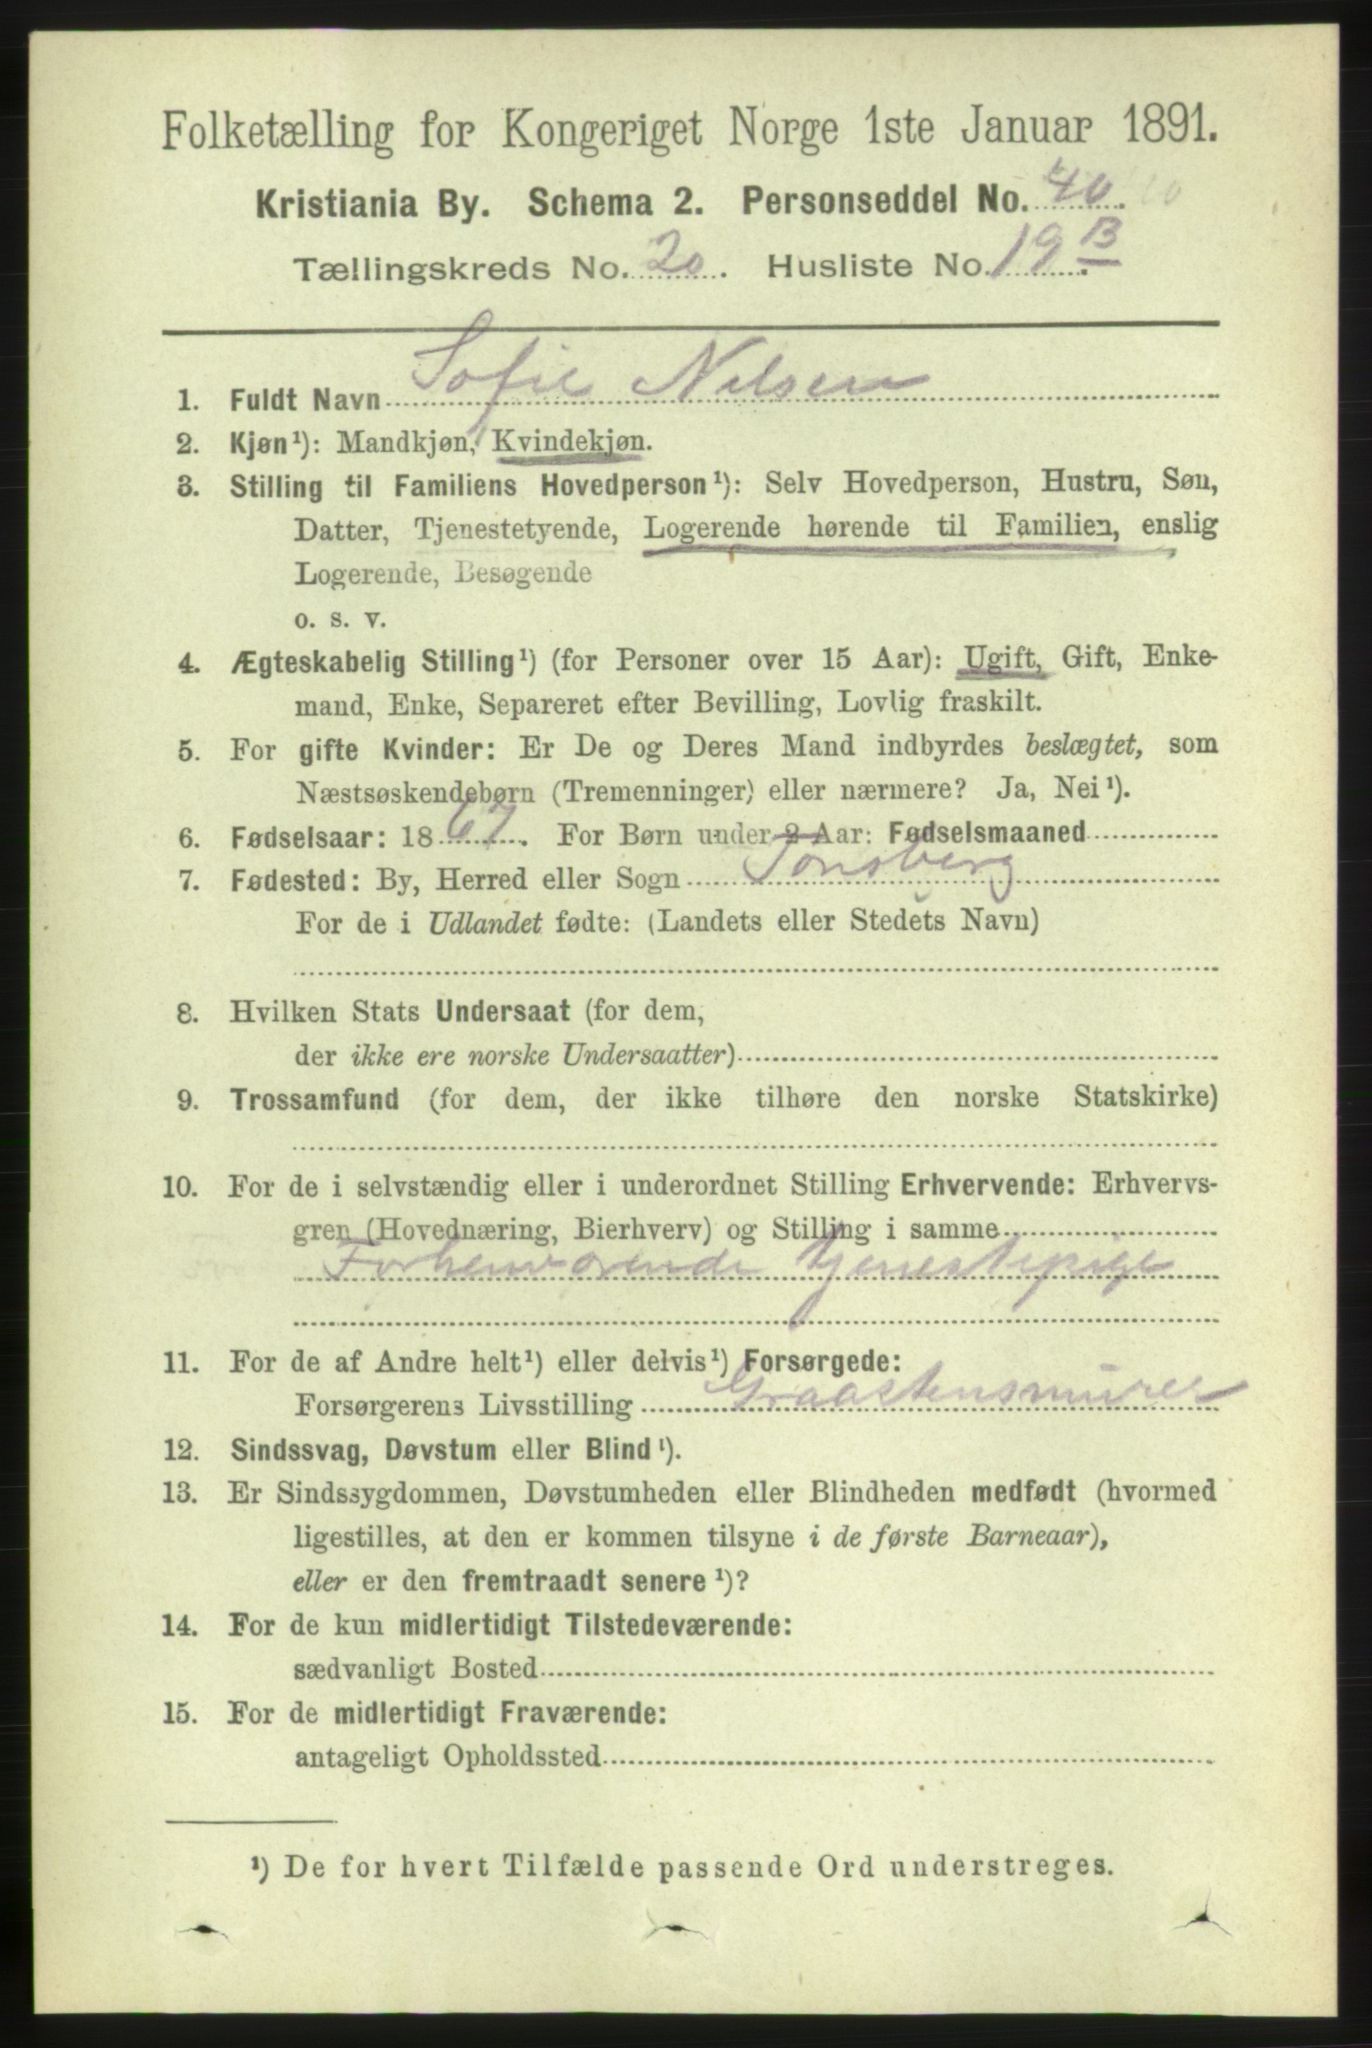 Folketælling for Kongeriget Norge 1ste Januar 1891.
Kristiania By. Schema 2. Personseddel No. 40.
Tællingskreds No. 20. Husliste No. 19 B.
1. Fuldt Navn Sofie Nilsen
2. Kjøn¹): Mandkjøn, Kvindekjøn.
3. Stilling til Familiens Hovedperson¹): Selv Hovedperson, Hustru, Søn,
Datter, Tjenestetyende, Logerende hørende til Familien, enslig
Logerende, Besøgende
o. s. v.
4. Ægteskabelig Stilling¹) (for Personer over 15 Aar): Ugift, Gift, Enke-
mand, Enke, Separeret efter Bevilling, Lovlig fraskilt.
5. For gifte Kvinder: Er De og Deres Mand indbyrdes beslægtet, som
Næstsøskendebørn (Tremenninger) eller nærmere? Ja, Nei¹).
6. Fødselsaar: 1867. For Børn under 2 Aar: Fødselsmaaned
7. Fødested: By, Herred eller Sogn Tønsberg
For de i Udlandet fødte: (Landets eller Stedets Navn)
8. Hvilken Stats Undersaat (for dem,
der ikke ere norske Undersaatter)
9. Trossamfund (for dem, der ikke tilhøre den norske Statskirke)
10. For de i selvstændig eller i underordnet Stilling Erhvervende: Erhvervs-
gren (Hovednæring, Bierhverv) og Stilling i samme
Forhenværende tjenestepige
11. For de af Andre helt¹) eller delvis¹) Forsørgede:
Forsørgerens Livsstilling Graastensmurer
12. Sindssvag, Døvstum eller Blind¹).
13. Er Sindssygdommen, Døvstumheden eller Blindheden medfødt (hvormed
ligestilles, at den er kommen tilsyne i de første Barneaar),
eller er den fremtraadt senere¹)?
14. For de kun midlertidigt Tilstedeværende:
sædvanligt Bosted
15. For de midlertidigt Fraværende:
antageligt Opholdssted
¹) De for hvert Tilfælde passende Ord understreges.